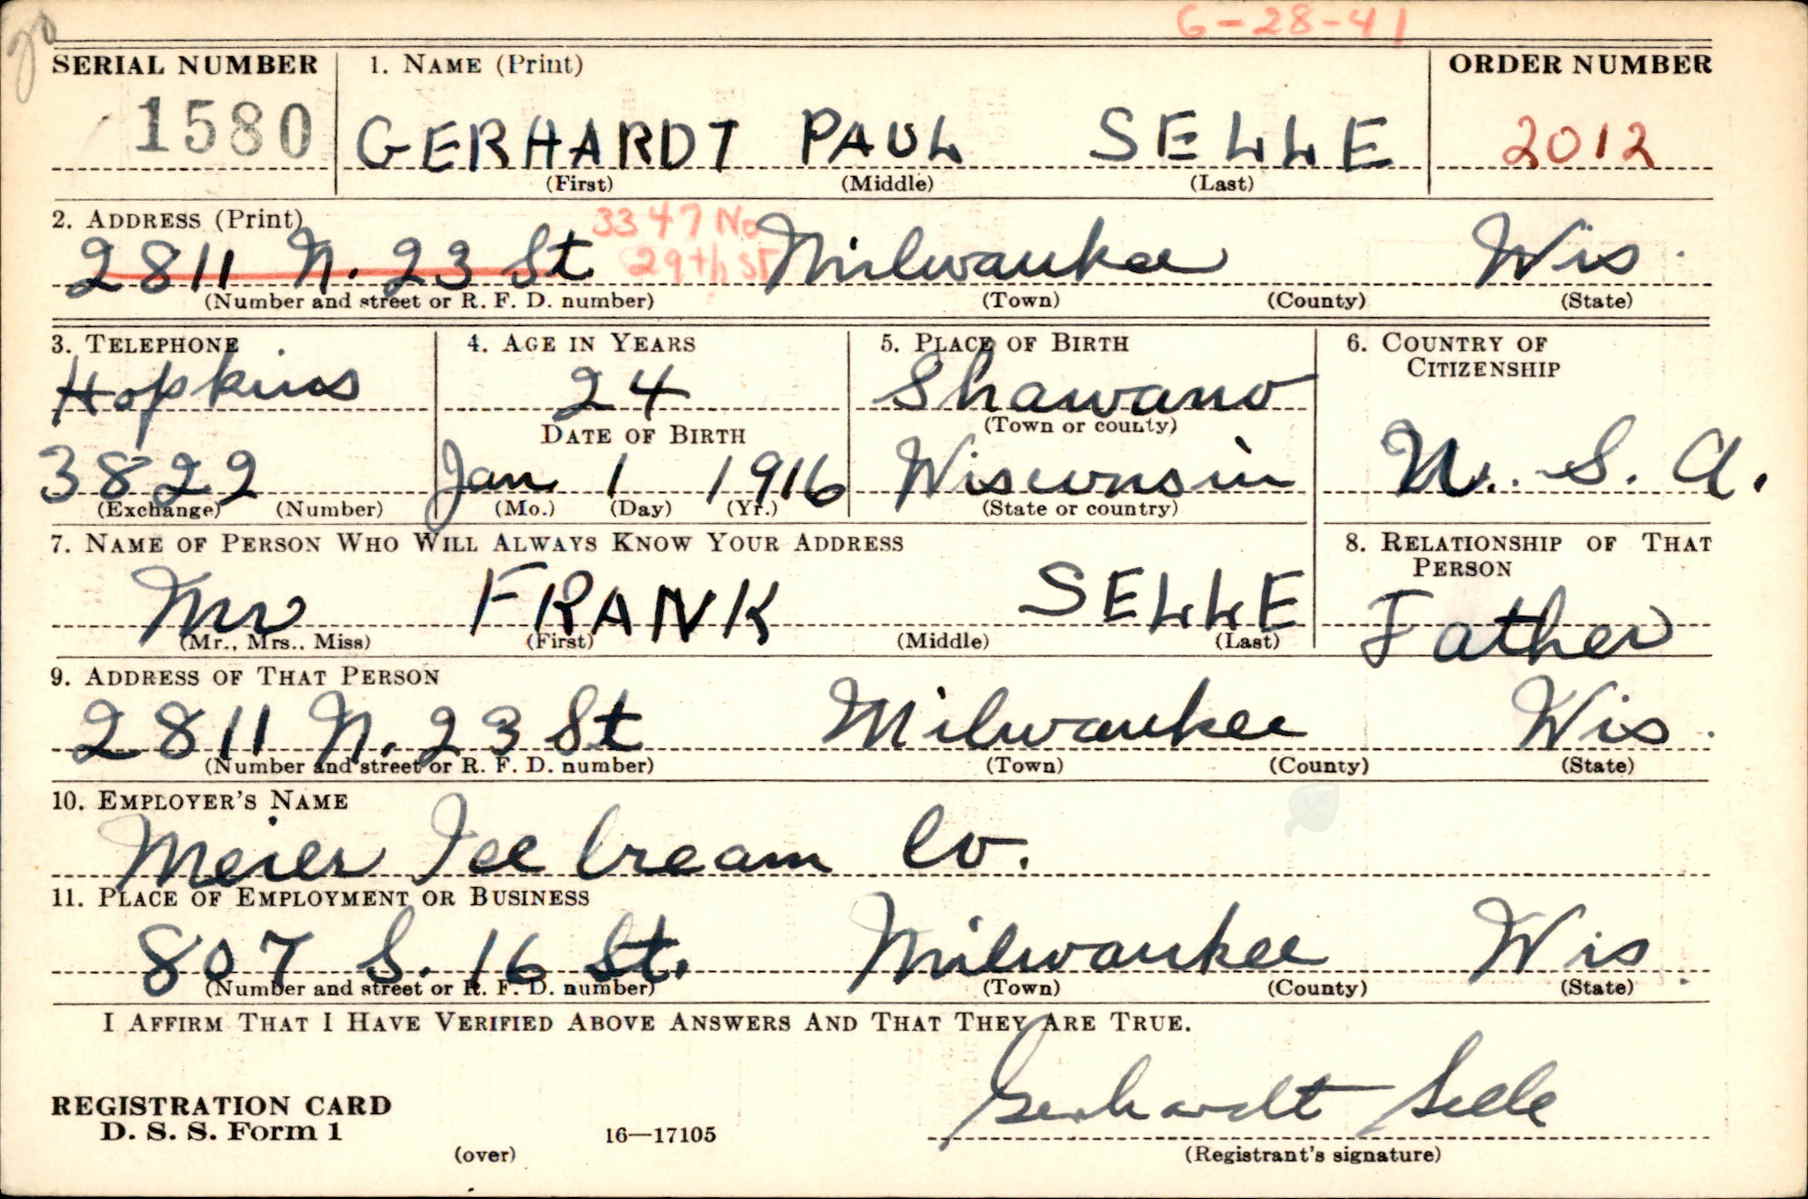 6-28-41
SERIAL NUMBER 1. NAME (Print) ORDER NUMBER
1580 GERHARDT PAUL SELLE 2012
(First) (Middle) (Last)
2. ADDRESS (Print) 3347 No
2811 N. 23 St 29th ST Milwaukee Wis.
(Number and street or R. F. D. number) (Town) (County) (State)
3. TELEPHONE 4. AGE IN YEARS 5. PLACE OF BIRTH 6. COUNTRY OF
CITIZENSHIP
Hopkins 24 Shawano
DATE OF BIRTH (Town or county)
3822 Jan 1 1916 Wisconsin U. S. A.
(Exchange) (Number) (Mo.) (Day) (Yr.) (State or country)
7. NAME OF PERSON WHO WILL ALWAYS KNOW YOUR ADDRESS 8. RELATIONSHIP OF THAT
PERSON
Mr FRANK SELLE Father
(Mr., Mrs., Miss) (First) (Middle) (Last)
9. ADDRESS OF THAT PERSON
2811 N. 23 St Milwaukee Wis.
(Number and street or R. F. D. number) (Town) (County) (State)
10. EMPLOYER'S NAME
Meier Ice Cream Co.
11. PLACE OF EMPLOYMENT OR BUSINESS
807 S. 16 St. Milwaukee Wis.
(Number and street or R. F. D. number) (Town) (County) (State)
I AFFIRM THAT I HAVE VERIFIED ABOVE ANSWERS AND THAT THEY ARE TRUE.
Gerhardt Selle
REGISTRATION CARD
D. S. S. Form 1 16—17105
(over) (Registrant's signature)